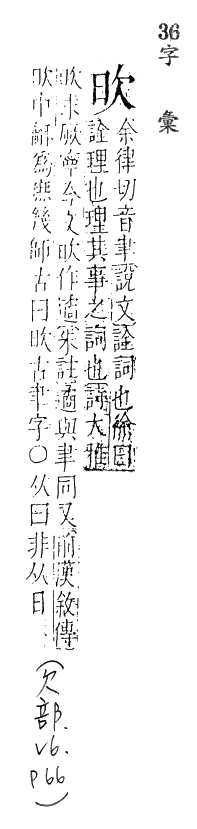 36字彙
欥
余律切音聿說文詮詞也徐曰
詮理也理其事之詞也詩大雅
欥求厥寧今文欥作遹朱註遹與聿同又前漢敘傳
欥中龢為庶幾師古曰欥古聿字〇从曰非从日
(欠部. v6. p66)